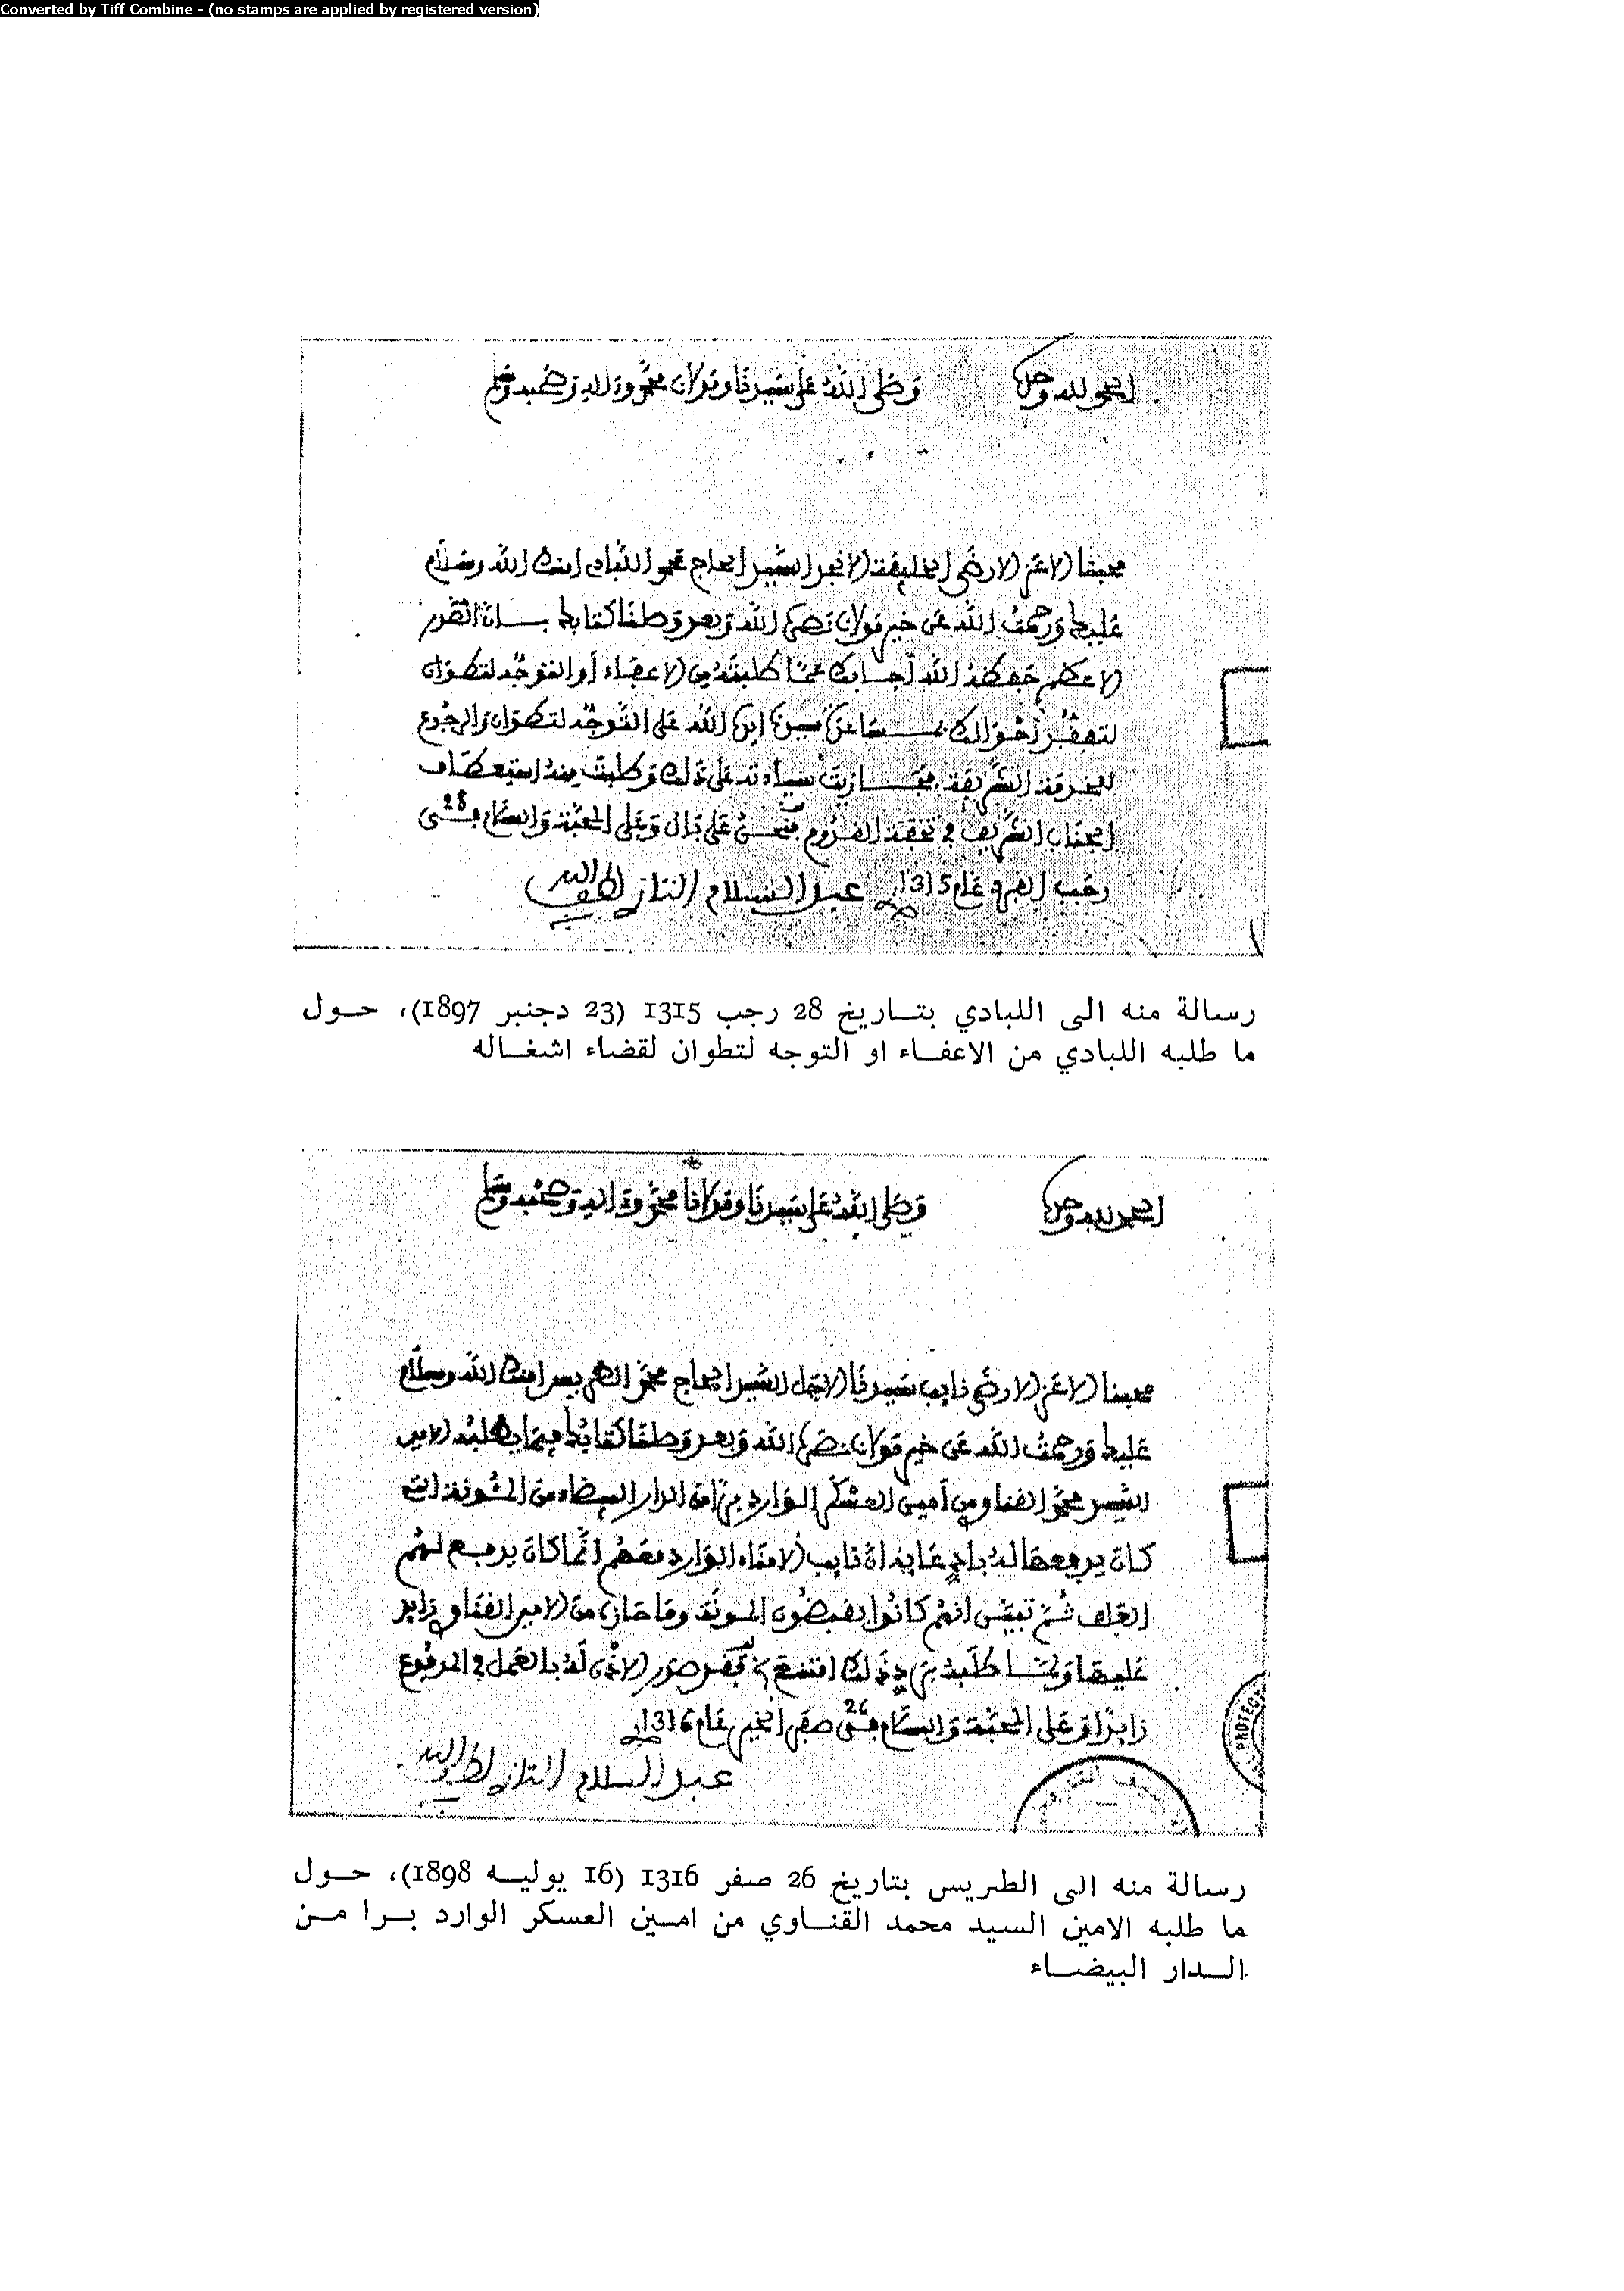 Converted by Tiff Combine - (no stamps are applied by registered version)
الحمد لله وحده وصلى الله على سيدنا ومولانا محمد وءاله وصحبه وسلم
محبنا الاعز الارضى الخليفة الانجد السيد الحاج محمد اللبادي امنك الله وسلام
عليك ورحمت الله عن خير مولانا نصره الله وبعد وصلنا كتابك بان المقدم
الاعظم حفظه الله اجابك عما طلبته من الاعفاء أو التوجه لتطوان
لتفقد أحوالك بمساعدة سيدنا ايده الله على التوجه لتطوان والرجوع
للخدمة الشريفة سيادته على ذلك وطلبت منه استعطاف
الجناب الشريف في اللزوم فنحن على بال وعلى المحبة والسلام في 28
رجب الفرد عام 1315
عبد السلام التازي لطف الله به
رسالة منه الى اللبادي بتاريخ 28 رجب 1315 (23 دجنبر 1897)، حول
ما طلبه اللبادي من الاعفاء او التوجه لتطوان لقضاء اشغاله
الحمد لله وحده وصلى الله على سيدنا ومولانا محمد وءاله وصحبه وسلم
محبنا الاعز الارضى نايب سيدنا الاجل السيد الحاج محمد الطريس امنك الله وسلام
عليك ورحمت الله عن خير مولانا نصره الله وبعد وصلنا كتابك فيما طلبه الامين
السيد محمد القناوي من أمين العسكر الوارد برا من الدار البيضاء من المونة التي
كان يدفعها له نايب الامناء الوارد معهم انما كان يدفع لهم
العلف ثم تبين انهم كانوا يقبضون المونة وما حازه من الامين القناوي زايد
عليها ولما طلبه في ذلك امتنع فقد صدر الاذن له بالعمل في المدفوع
زايدا وعلى المحبة والسلام في 26 صفر الخير عام 1316
عبد السلام التازي لطف الله به
رسالة منه الى الطريس بتاريخ 26 صفر 1316 (16 يوليه 1898)، حول
ما طلبه الامين السيد محمد القناوي من امين العسكر الوارد برا من
الدار البيضاء